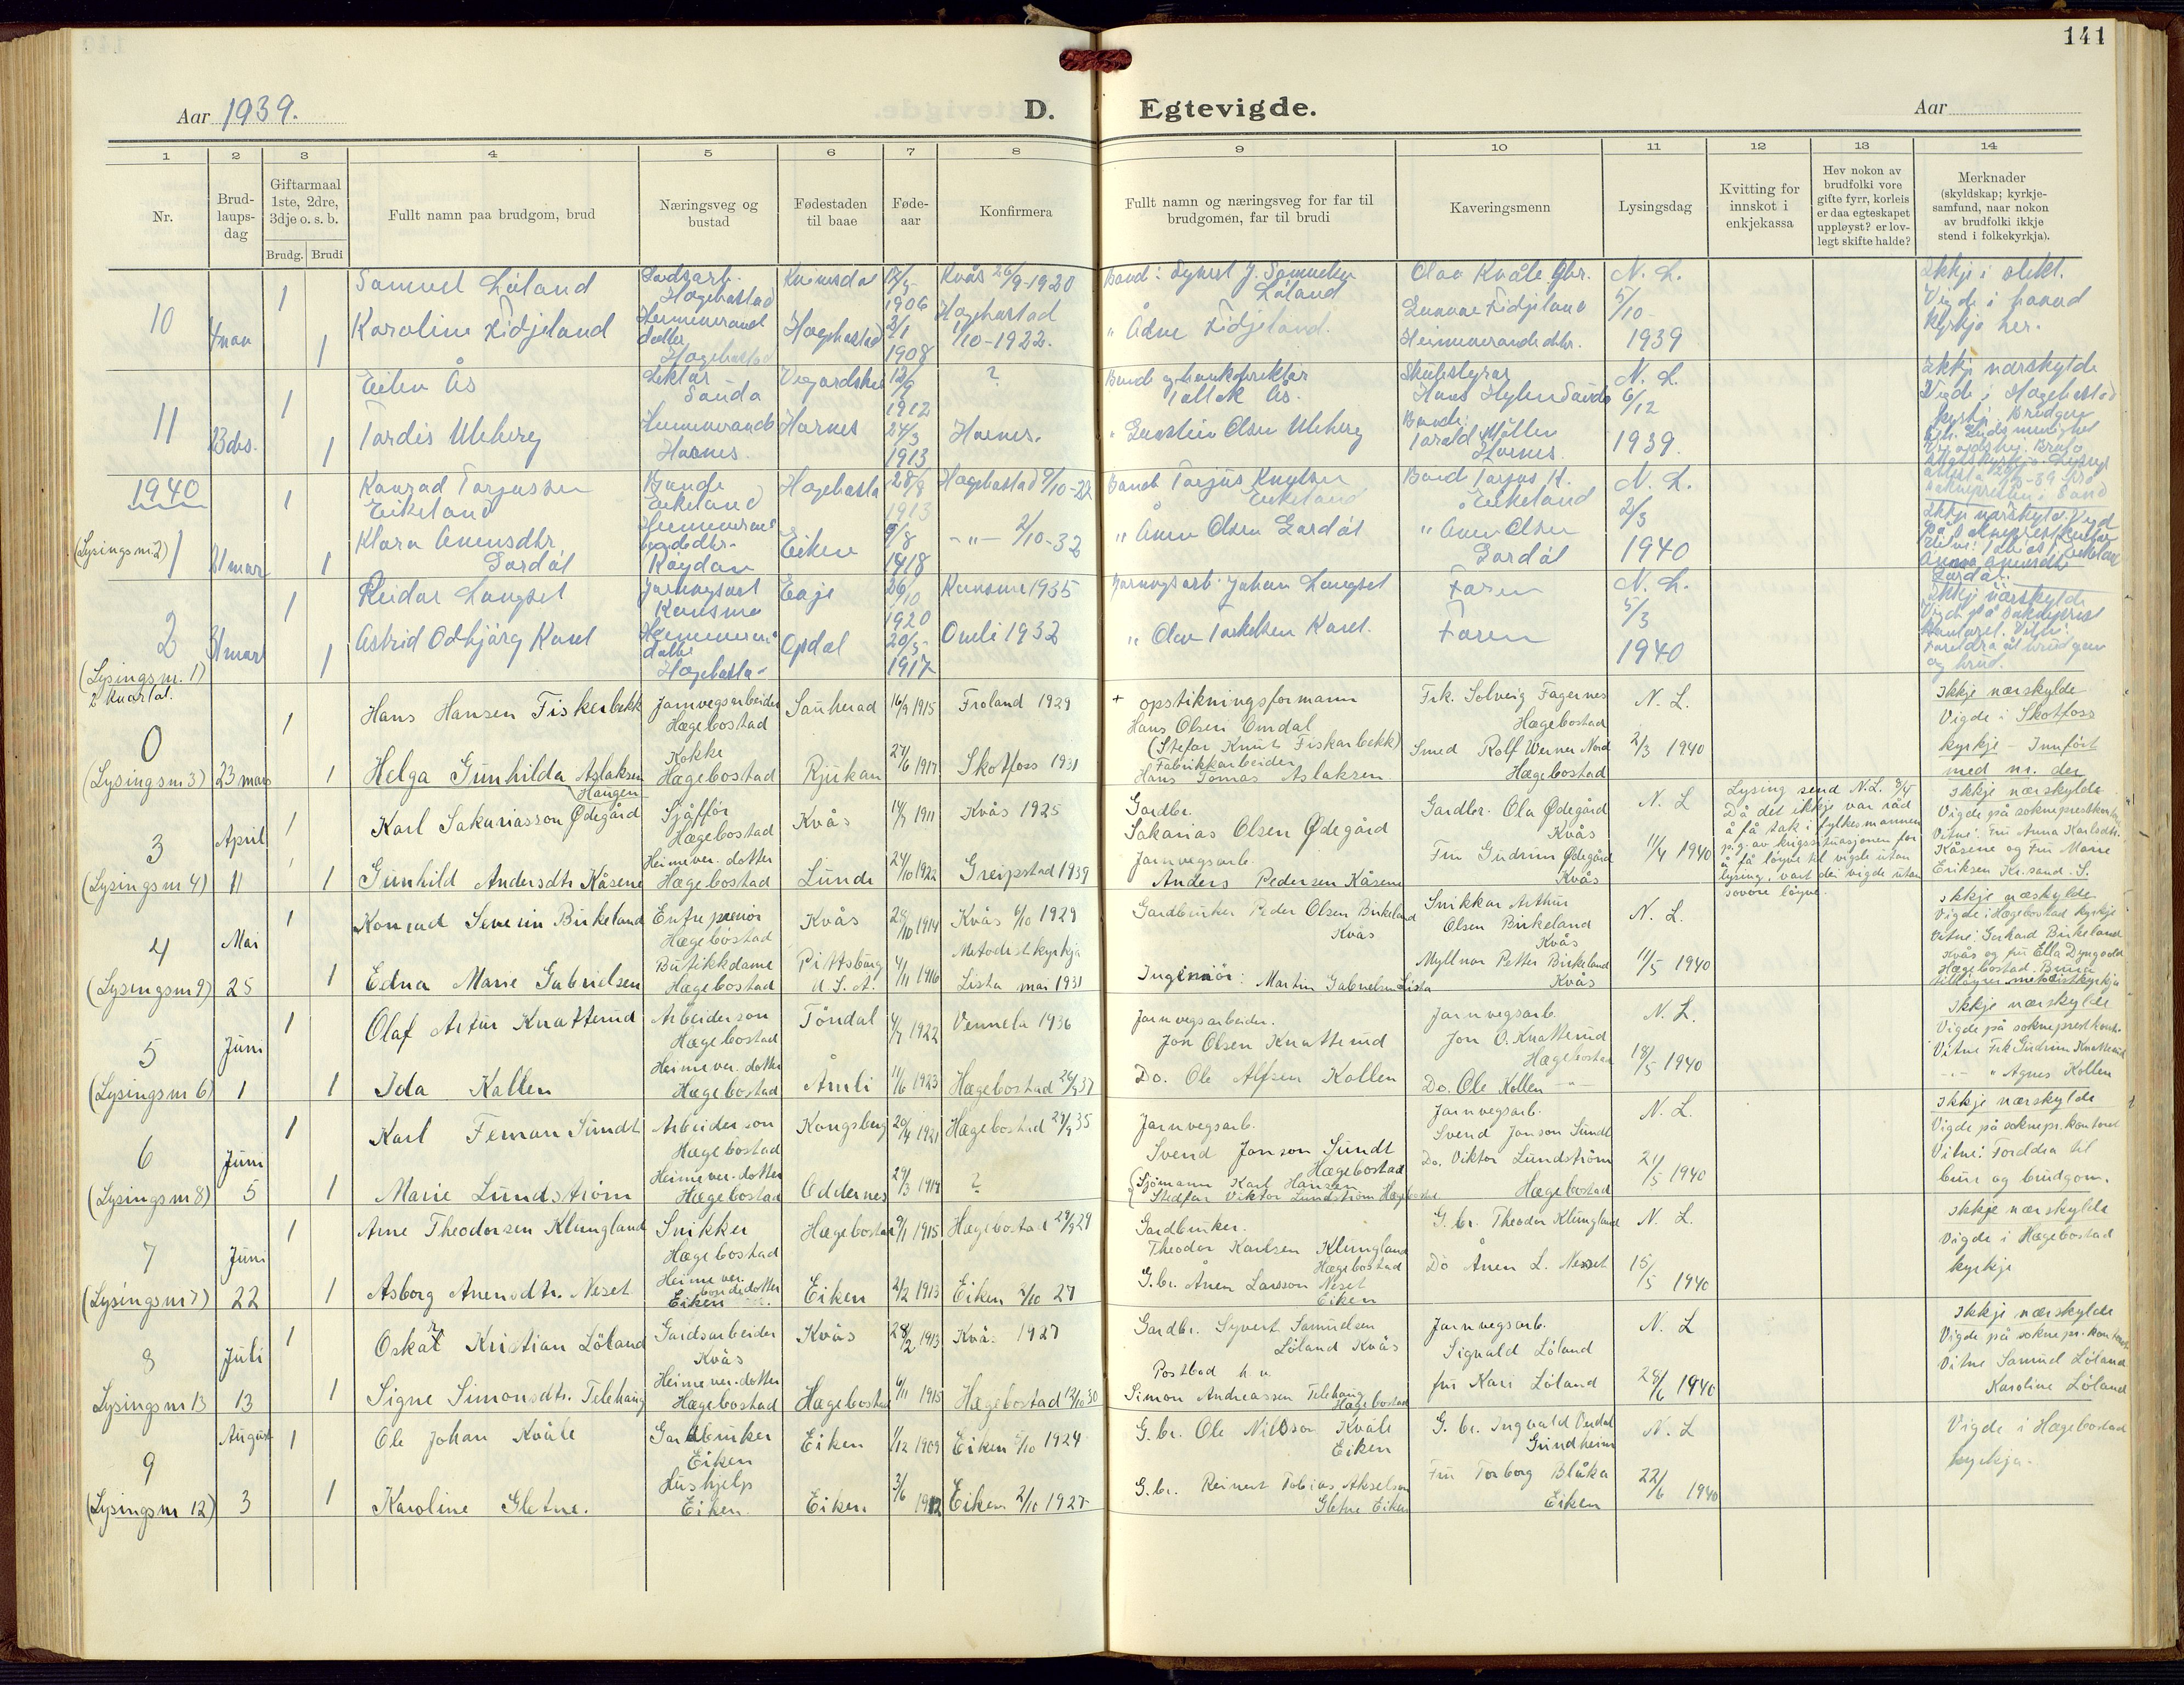 141
Aar 1939.
D. Egtevigde.
Aar
1 2 3 4 5 6 7 8 9 10 11 12 13 14
Nr.
Brud-
laups-
dag
Giftarmaal
1ste, 2dre,
3dje o. s. b.
Brudg. Brudi
Fullt namn paa brudgom, brud
Næringsveg og
bustad
Fødestaden
til baae
Føde-
aar
Konfirmera
Fullt namn og næringsveg for far til
brudgomen, far til brudi
Kaveringsmenn
Lysingsdag
Kvitting for
innskot i
enkjekassa
Hev nokon av
brudfolki vore
gifte fyrr, korleis
er daa egteskapet
uppløyst? er lov-
legt skifte halde?
Merknader
(skyldskap; kyrkje-
samfund, naar nokon
av brudfolki ikkje
stend i folkekyrkja).
10
4 nov
1
Samuel Löland
Hægebostad
Kvinesdal
1906
Kvås 26/9-1920
Löland
Olav Kvåle
N. L.
5/10
1939
1
Karoline Fidjeland
Hægebostad
2/1
1908
Hægebostad
1/10-1922.
" Ådne Fidjeland.
Gunnar Fidjeland
kyrkje her.
11
23 des.
1
Eilev Ås
Lektor
Sauda
12/9
1912
?
Tallak Ås.
Skulestyrar
N. L.
6/12
1939.
Ikkje nærskylde
1
Tordis Uleberg
Hornes.
Hornes
24/3
1913
Hornes.
" Gunstein Olsen Uleberg
Hornes.
1940
(Lysings nr 2) 1
21 mars
1
Konrad Tarjussen
Eikeland
Bonde
Eikeland
28/8
1913
Hægebostad 9/10-22
Bonde Tarjus Knutsen
Eikeland
Bonde Tarjus K.
Eikeland
N. L.
2/3
1940
Ikkje nærskylde. Vigd
1
Klara Ånensdtr
Gardål
Eiken
9/8
1918
-"- 2/10-32
" Ånen Olsen Gardål
" Ånen Olsen
Gardål
2
(Lysings nr. 1)
31 mars
1
Reidar Langset
Evje
26/10
1920
1935
Jarnvegsarb. Johan Langset
Faren
N. L.
5/3
1940
Ikkje nærskylde
1
Astrid Odbjörg
Opdal
20/5-
1917
Omli 1932
" Olav
Faren
og brud.
2 kvartal.
0
(Lysings nr 3)
23 mars
1
Hans Hansen Fiskerbekk
Jarnvegsarbeider
Hægebostad
Sauherad
16/9 1915
Froland 1929
+ opstikningsformann
Hans Olsen Omdal
(Stefar Knut Fiskarbekk)
Frk. Solveig Fagernes
Hægebostad
N. L.
2/3 1940
Ikkje nærskylde
Vigde i Skotfoss
kyrkje – Innfört
med nr. der
1
Helga Gunhilda Aslaksen
Haugen
Kokke
Hægebostad
Rjukan
27/6 1917
Skotfoss 1931
Fabrikkarbeider
Hans Tomas Aslaksen
Smed Rolf Werner Nord
Hægebostad
3
(Lysings nr 4)
April
11
1
Karl Sakariasson Ødegård
Sjåffør
Hægebostad
Kvås
14/7 1911
Kvås 1925
Gardbr.
Sakarias Olsen Ødegård
Gardbr. Ola Ødegård
Kvås
N. L
11/4 1940
Lysing send N.L. 9/4
Då det ikkje var råd
å få tak i fylkesmannen
p.g. av krigssituasjonen for
å få løyve til vigsle utan
lysing, vart dei vigde utan
sovore løyve.
Ikkje nærskylde
Vigde på sokneprestkontor
Vitne: Fru Anna Karlsdtr.
Kåsene og Fru Marie
Eriksen Kr.sand. S.
1
Gunhild Andersdtr Kåsene
Heimever. dotter
Hægebostad
Lunde
27/10 1922
Greipstad 1939
Jarnvegsarb.
Anders Pedersen Kåsene
Fru Gudrun Ødegård
Kvås
4
(Lysings nr 9)
Mai
25
1
Konrad Severin Birkeland
Entreprenör
Hægebostad
Kvås
28/10 1914
Kvås 6/10 1929
Gardbruker Peder Olsen Birkeland
Kvås
Snikkar Arthur
Olsen Birkeland
Kvås
N. L.
11/5 1940
Ikkje næskylde
Vigde i Hægebostad kyrkje
Vitne: Gerhard Birkeland
Kvås og fru Ella Dyngvold
Hægebostad. Bruri
tilhöyrer metodistkyrkja
1
Edna Marie Gabrielsen
Butikkdame
Hægebostad
Pittsburg
U. S. A.
4/11 1916
Metodistkyrkja
Lista mai 1931
Ingeniör: Martin Gabrielsen Lista
Myllnar Petter Birkeland
Kvås
5
(Lysings nr 6)
Juni
1
1
Olaf Artur Knatterud
Arbeiderson
Hægebostad
Töndal
4/7 1922
Vennela 1936
Jarnvegsarbeider.
Jon Olsen Knatterud
Jarnvegsarb.
Jon O. Knatterud
Hægebostad
N. L.
18/5 1940
Ikkje nærskylde
Vigde på sokneprestkont.
Vitne Frk Gudrun Knatterud
-"- " Agnes Kollen
1
Ida Kollen
Heimever. dotter
Hægebostad
Åmli
11/6 1923
Hægebostad 26/9 37
Do. Ole Alfsen Kollen
Do. Ole Kollen -"-
6
(Lysings nr 8)
Juni
5
1
Karl Ferman Sundt
Arbeiderson
Hægebostad
Kongsberg
20/4 1921
Hægebostad 29/9 35
Jarnvegsarb.
Svend Jonson Sundt
Hægebostad
Jarnvegsarb.
Svend Jonson Sundt
N. L.
21/5 1940
Ikkje nærskylde
Vigde på soknepr. kontoret
Vitne: Foreldra til
brur og brudgom.
1
Marie Lundström
Heimever. dotter
Hægebostad
Oddernes
29/3 1919
?
Sjömann Karl Hansen
Stedfar Viktor Lundström Hægebostad
Do. Viktor Lundström
Hægebostad
7
(Lysings nr 7)
Juni
22
1
Arne Theodorsen Klungland
Snikker
Hægebostad
Hægebostad
9/1 1915
Hægebostad 29/9 29
Gardbruker.
Theodor Karlsen Klungland
Hægebostad
G. br. Theodor Klungland
N. L.
15/5 1940
Ikkje nærskylde
Vigde i Hægebostad
kyrkje
1
Asborg Ånensdtr. Neset
Heimever.
bondedotter
Eiken
Eiken
2/2 1913
Eiken 2/10 27
G. br. Ånen Larsson Neset
Eiken
Do Ånen L. Neset
8
Lysings nr 13
Juli
13
1
Oskar Kristian Löland
Gardsarbeider
Kvås
Kvås
28/2 1913
Kvås 1927
Gardbr. Syvert Samuelsen
Löland Kvås
Jarnvegsarb.
Sigvald Löland
N. L
28/6 1940
Ikkje nærskylde
Vigde på soknepr. kontoret
Vitne Samuel Löland
Karoline Löland
1
Signe Simonsdtr. Telehaug
Heimever. dotter
Hægebostad
Hægebostad
6/11 1915
Hægebostad 12/10 30
Postbod
Simon Andreassen Telehaug
Hægebostad
fru Kari Löland
9
(Lysings nr 12)
August
3
1
Ole Johan Kvåle
Gardbruker
Eiken
Eiken
1/12 1909
Eiken 5/10 1924
G. br. Ole Nilsson Kvåle
Eiken
G. br. Ingvald
Grindheim
N. L
22/6 1940
Vigde i Hægebostad
kyrkja.
1
Karoline Gletne.
Hushjelp
Eiken.
Eiken
3/6 1912
Eiken 2/10 1927
G. br. Reinert Tobias Akselsen
Gletne Eiken
Fru Torborg Blåka
Eiken